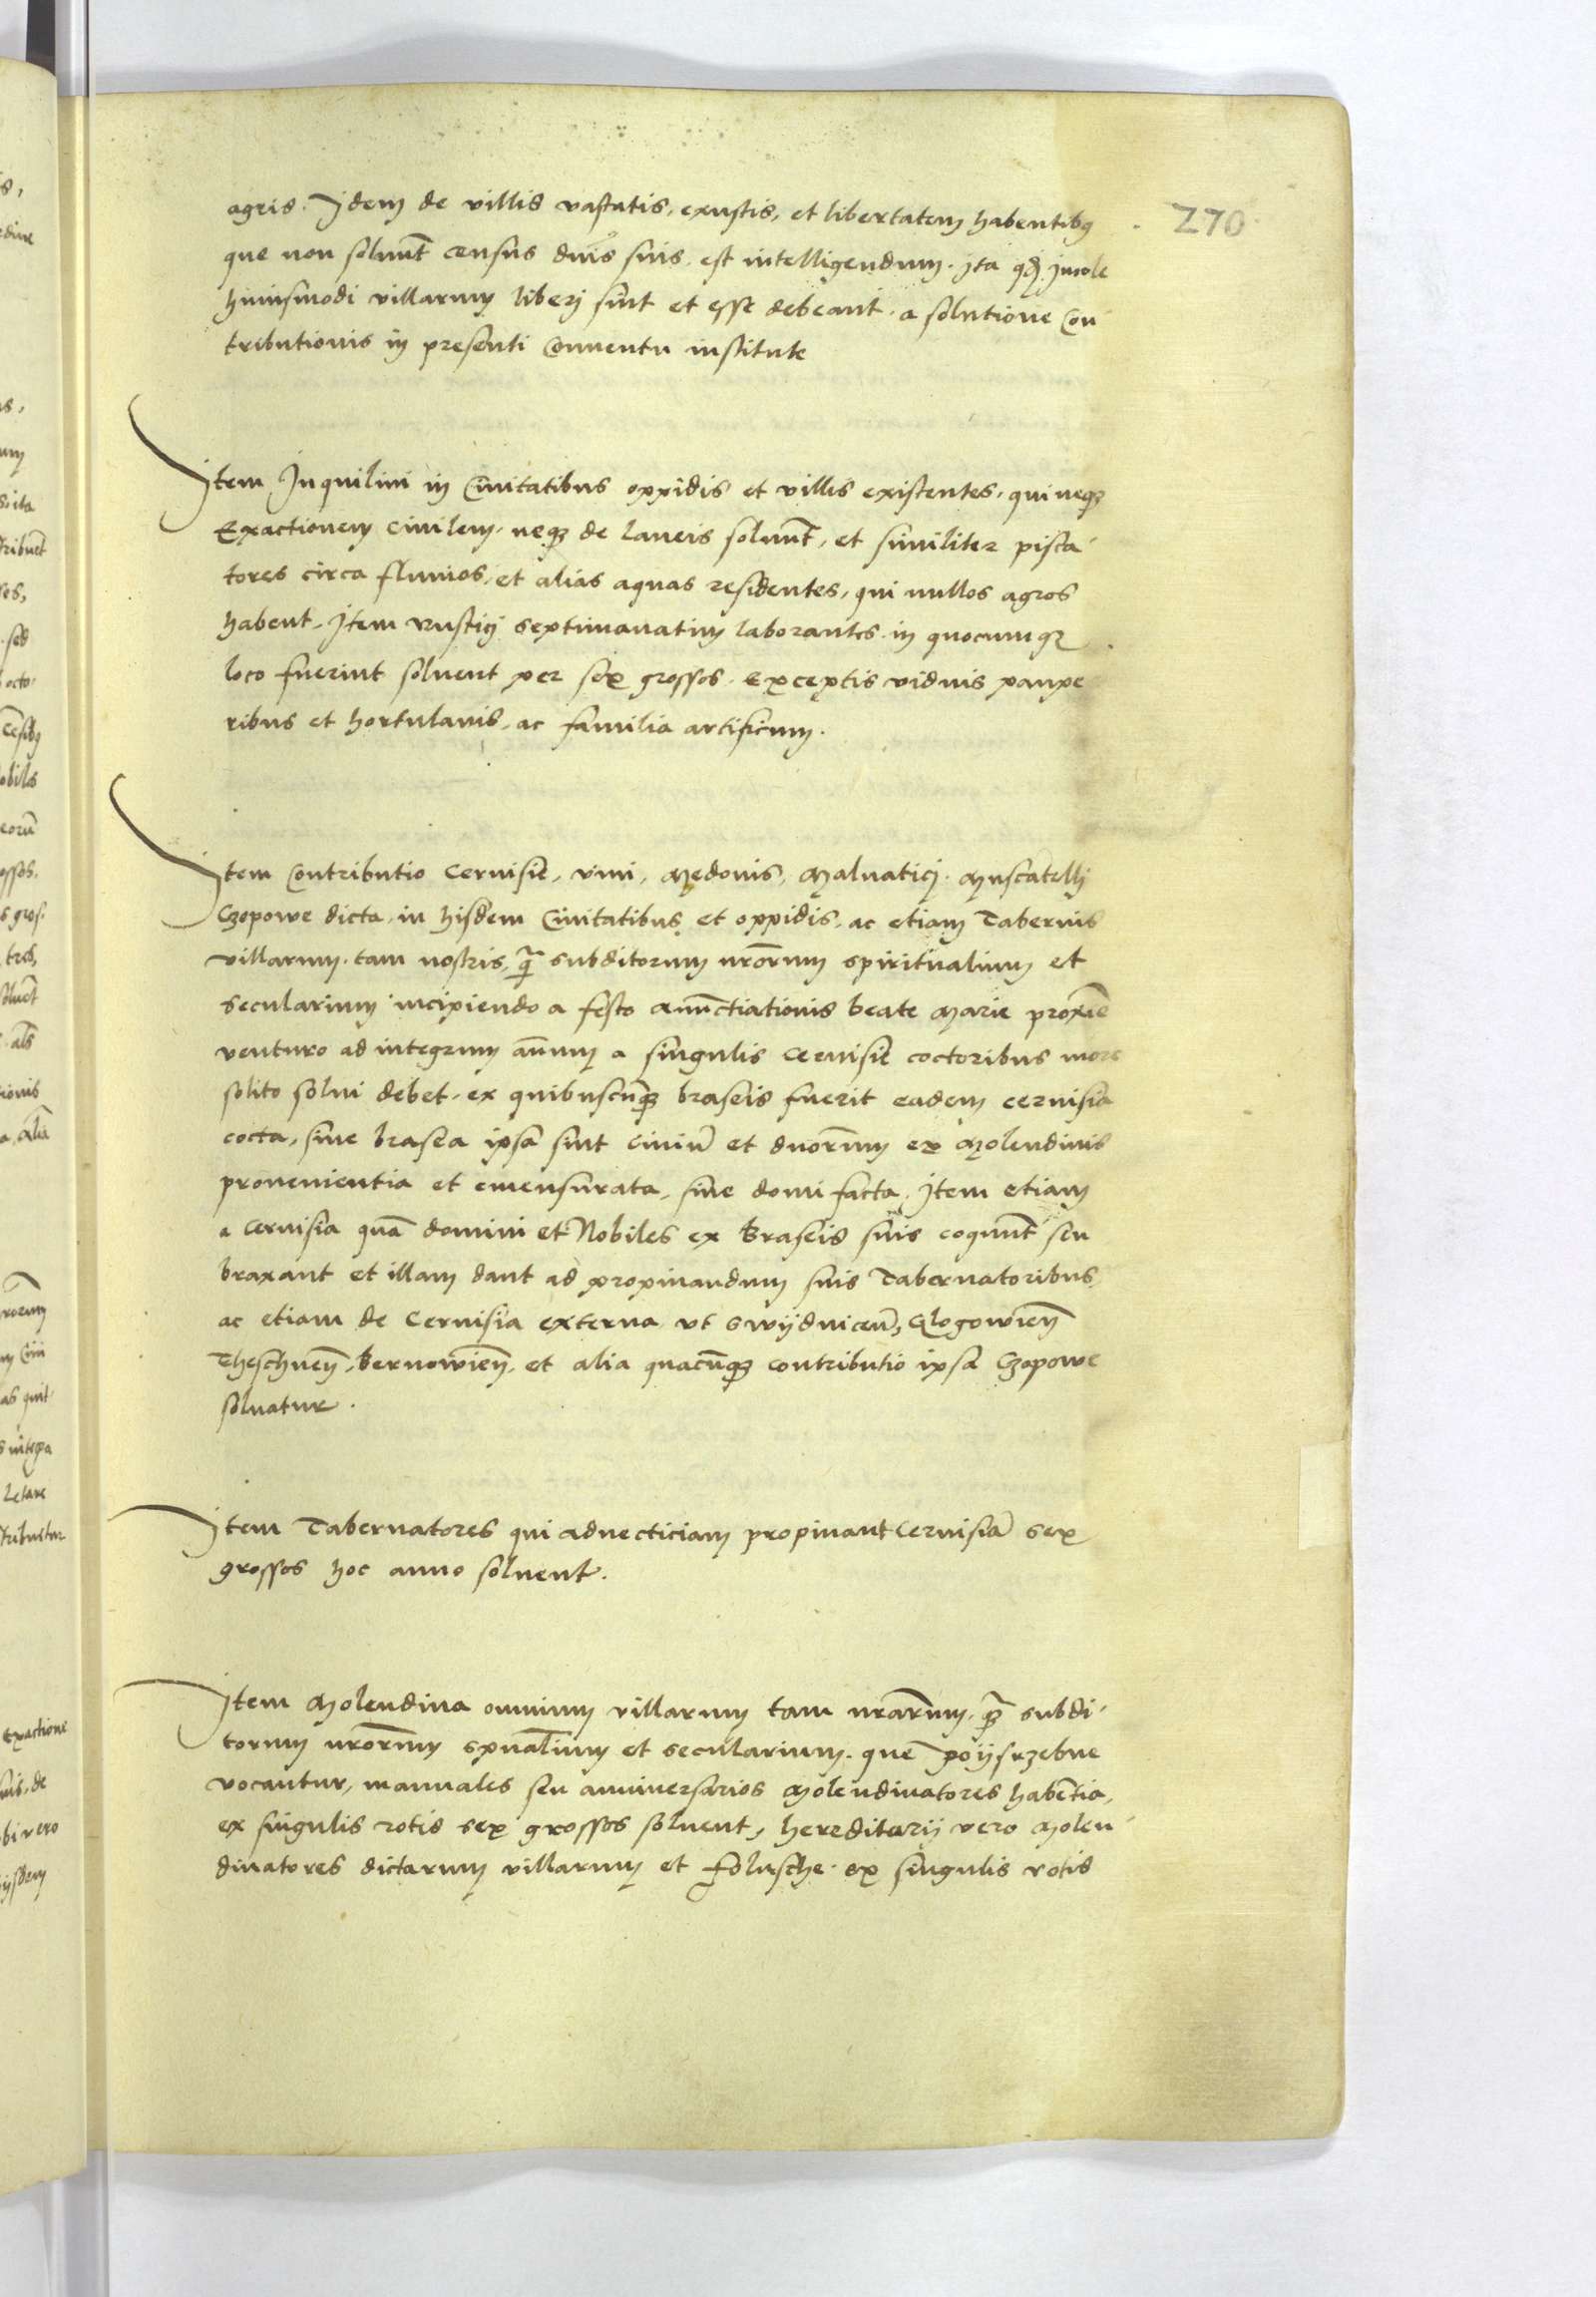 270
agris. Idem de villis vastatis, exustis, et libertatem habentibꝰ
que non soluūt census dnīs suis. est intelligendum. Ita qđ Incole
huiusmodi villarum liberi sint et esse debeant. a solutione Con
tributionis in presenti Conuentu institute
Item Inquilini in Ciuitatibus oppidis et villis existentes, qui neqꝫ
Exactionem Ciuilem, neqꝫ de laneis soluūt, et similiter pisca
tores circa fluuios, et alias aquas residentes, qui nullos agros
habent, Item rustici septimanatim laborantes in quocumqꝫ
loco fuerint soluent per sex grossos. Exceptis viduis paupe
ribus et hortulanis, ac familia artificum.
Item Contributio Ceruisie, vini, Medonis, Maluatici, Muscatelli
Czopowe dicta, in hisdem Ciuitatibus et oppidis, ac etiam Tabernis
villarum. tam nostris, qꝫ subditorum nrōrum spiritualium et
secularium incipiendo a festo Anūctiationis beate Marie proxīe
venturo ad integrum annum a singulis Ceruisie coctoribus more
solito solui debet, ex quibuscūqꝫ braseis fuerit eadem ceruisia
cocta, siue brasea ipsa sint Ciuiū et dnōrum ex Molendinis
prouenientia et emensurata, siue domi facta. Item etiam
a Ceruisia quā domini et Nobiles ex Braseis suis coquūt seu
braxant et illam dant ad propinandum suis Tabernatoribus,
ac etiam de Ceruisia externa vt Swijdniceñ, Glogowieñ
Theschneñ, Bernowieñ, et alia quacūqꝫ contributio ipsa Czopowe
soluatur.
Item Tabernatores qui aduecticiam propinant Ceruisiā sex
grossos hoc anno soluent.
Item Molendina omnium villarum tam nrārum, qꝫ subdi
torum nrōrum spūaliūm et secularium. que poijsrzebne
vocantur, manuales seu anniuersarios Molendinatores habētia,
ex singulis rotis sex grossos soluent, hereditarij vero Molen
dinatores dictarum villarum et folusche. ex singulis rotis